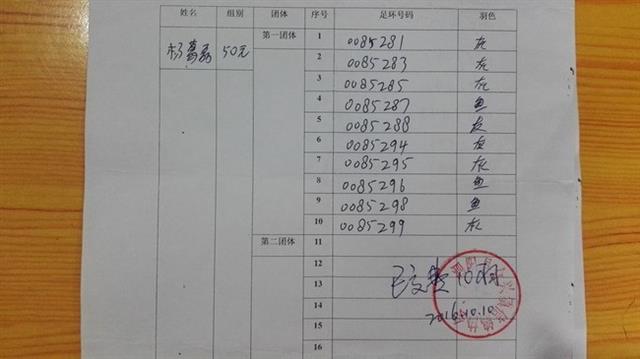 姓名 组别 团体 序号 足环号码 羽色
杨 50元 第一团体 1 0085281 灰
2 0085283 灰
3 0085285 灰
4 0085287 鱼
5 0085288 灰
6 0085294 灰
7 0085295 灰
8 0085296 鱼
9 0085298 鱼
10 0085299 灰
第二团体 11
12
已交费 10羽
13
2016.10.10
14
15
16